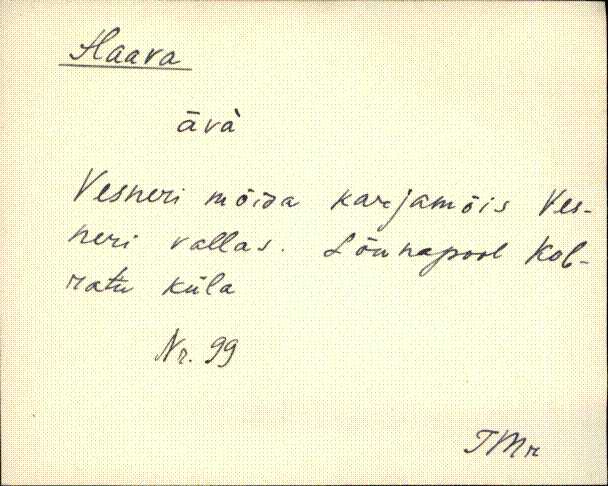 Haava
āvà
Vesneri mõisa karjamõis Ves-
neri vallas. Lõunapool Kob-
ratu küla
Nr. 99
TMr